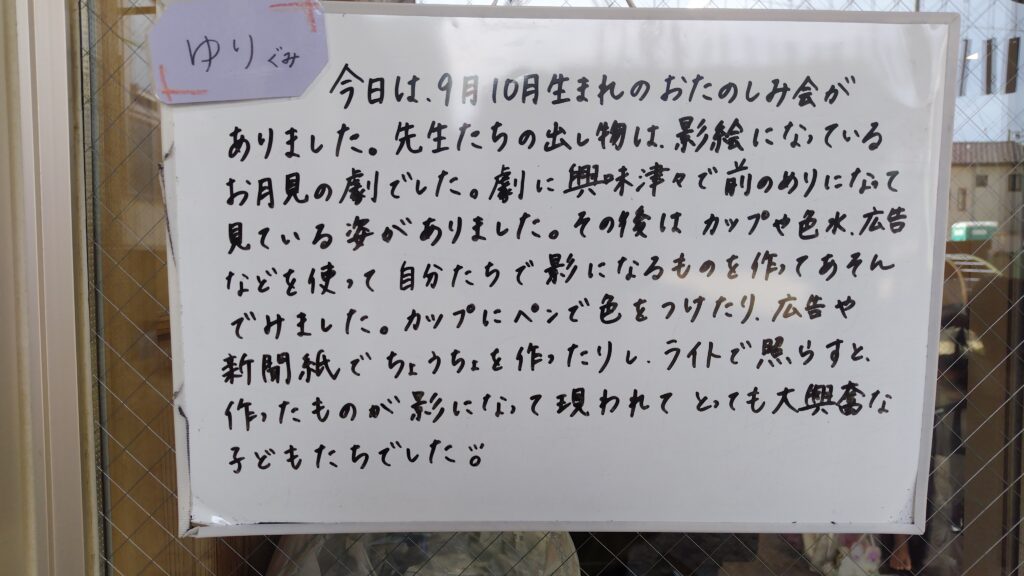 ゆりぐみ
今日は、9月10月生まれのおたのしみ会が
ありました。先生たちの出し物は、影絵になっている
お月見の劇でした。劇に興味津々で前のめりになって
見ている姿がありました。その後は カップや色水、広告
などを使って 自分たちで影になるものを作ってあそん
でみました。カップにペンで色をつけたり、広告や
新聞紙でちょうちょを作ったりし、ライトで照らすと、
作ったものが影になって現われて とっても大興奮な
子どもたちでした。